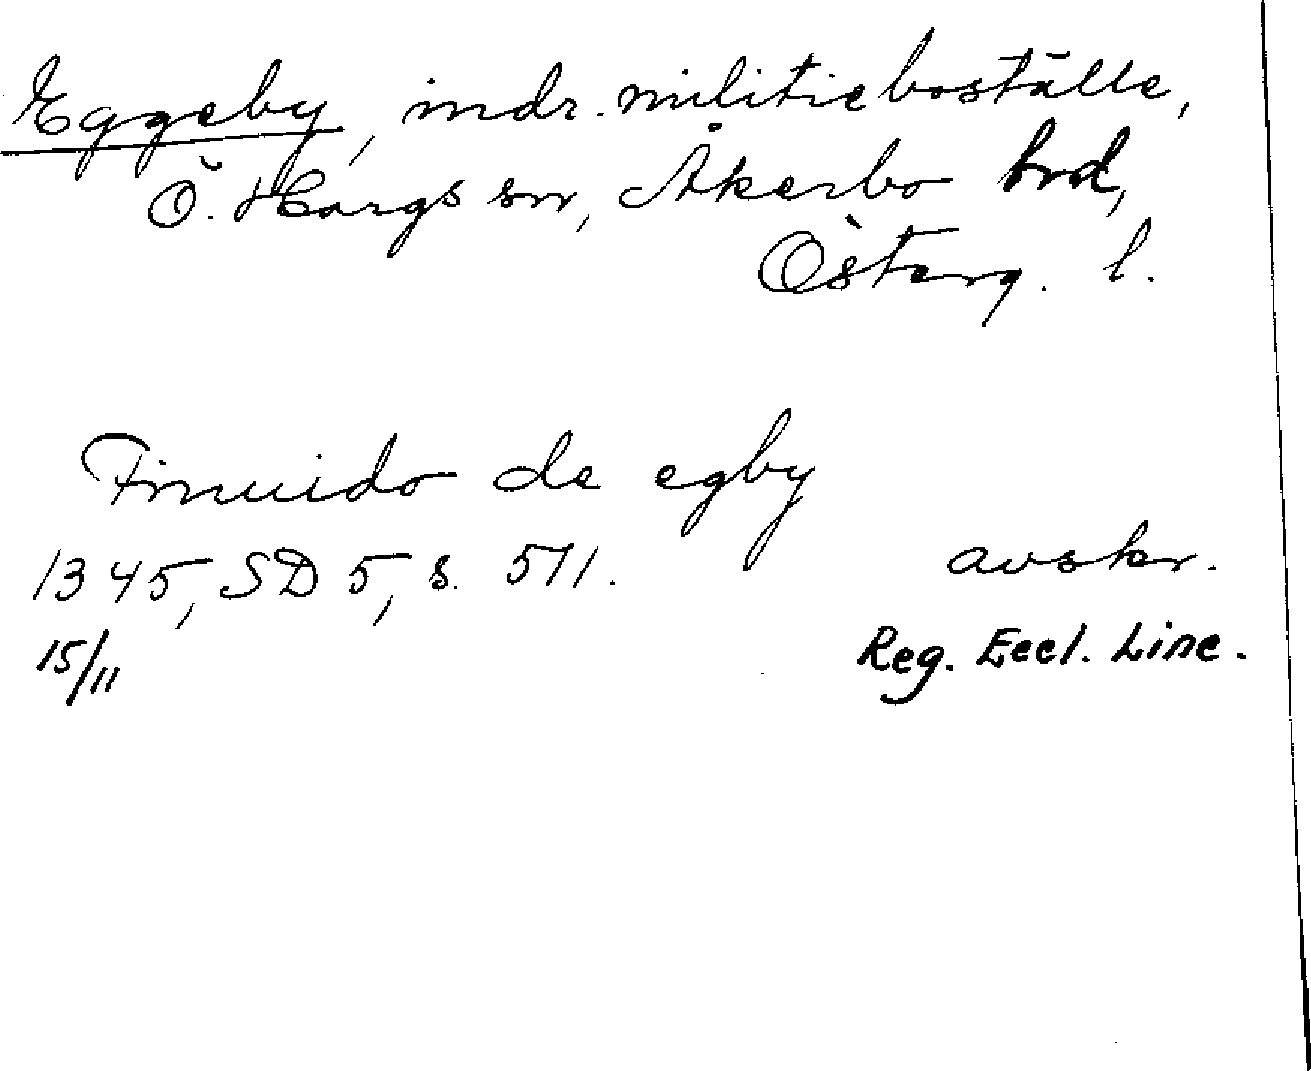 Eggeby, indr. militieboställe,
Ö. Hargs sn, Åkerbo hrd,
Österg. l.
Finuido de egby
1345, SD 5, s. 511. avskr.
15/11 Reg. Eccl. Linc.